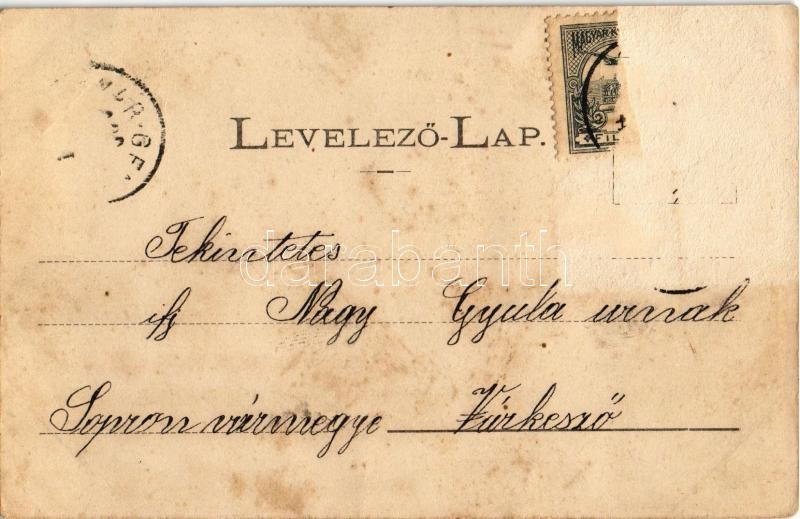 MAGYAR K
FIL
LEVELEZŐ-LAP.
Tekintetes
ifj Nagy Gyula urnak
Sopron vármegye Várkesző
darabanth